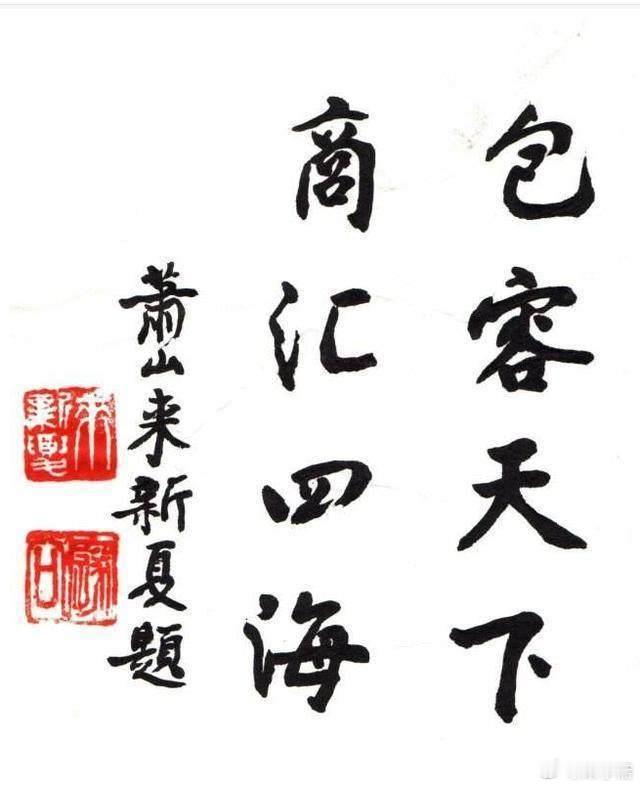 包容天下
商汇四海
萧山来新夏题
来新夏